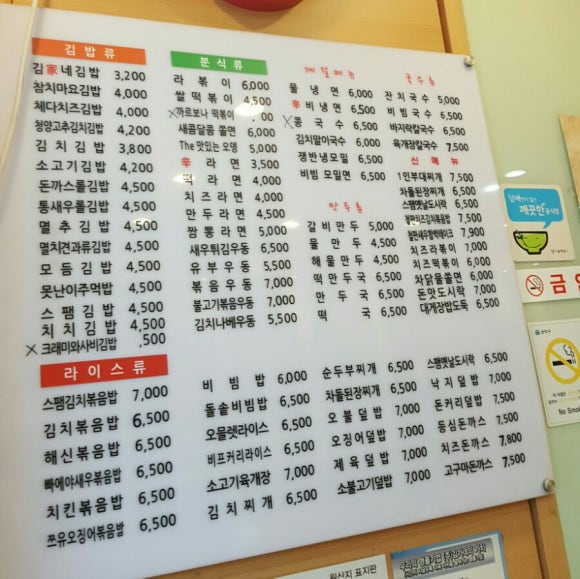 김밥류
김家네김밥 3,200
참치마요김밥 4,000
체다치즈김밥 4,000
청양고추김치김밥 4,200
김치김밥 3,800
소고기김밥 4,200
돈까스롤김밥 4,500
통새우롤김밥 4,500
멸추김밥 4,500
멸치견과류김밥 4,500
모듬김밥 4,500
못난이주먹밥 4,500
스팸김밥 4,500
치치김밥 4,500
X 크래미와사비김밥 ,500
분식류
라볶이 6,000
쌀떡볶이 4,500
X까르보나 떡볶이 00
새콤달콤 쫄면 6,000
The 맛있는 오뎅 5,000
辛라면 3,500
떡라면 4,000
치즈라면 4,000
만두라면 4,500
짬뽕라면 5,000
새우튀김우동 6,500
유부우동 5,500
볶음우동 7,000
불고기볶음우동 7,000
김치나베우동 5,500
계절메뉴
물냉면 6,000
辛비냉면 6,500
X 콩국수 6,500
김치말이국수 6,500
쟁반냉모밀 6,500
비빔모밀면 6,500
만두류
갈비만두 5,000
물만두 4,500
해물만두 4,500
떡만두국 6,500
만두국 6,500
떡국 6,500
국수류
잔치국수 5,000
비빔국수 6,500
바지락칼국수 6,500
육개장칼국수 7,500
신메뉴
1인부대찌개 7,500
차돌된장찌개 6,500
스팸옛날도시락 6,500
철판치즈김치볶음밥 7,500
7,900
치즈라볶이 7,000
치즈떡볶이 6,000
차닭물쫄면 6,000
돈맛도시락 7,000
대게장밥도둑 6,500
라이스류
스팸김치볶음밥 7,000
김치볶음밥 6,500
해신볶음밥 6,500
빠에야새우볶음밥 6,500
치킨볶음밥 6,500
쯔유오징어볶음밥 6,500
비빔밥 6,000
돌솥비빔밥 6,500
오믈렛라이스 6,500
비프커리라이스 6,500
소고기육개장 7,000
김치찌개 6,500
순두부찌개 6,500
차돌된장찌개 6,500
오불덮밥 7,000
오징어덮밥 7,000
제육덮밥 7,000
소불고기덮밥 7,000
스팸옛날도시락 6,500
낙지덮밥 7,000
돈커리덮밥 7,500
등심돈까스 7,500
치즈돈까스 7,800
고구마돈까스 7,500
깨끗한
금연
No Smok
원산지 표지판